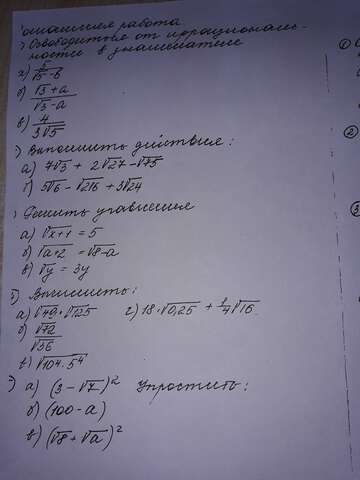 омашняя работа
) Освободиться от иррациональ-
ности в знаменателе
а) 5/(√5 - b)
б) (√3 + a)/(√3 - a)
в) 4/(3√5)
) Выполнить действия:
а) 7√3 + 2√27 - √75
б) 5√6 - √216 + 3√24
) Решить уравнения
а) √(x+1) = 5
б) √(a+2) = √(8-a)
в) √y = 3y
) Вычислить:
а) √49 · √125 г) 18 · √0,25 + 1/4√16
б) √72/√36
в) √(10⁴ · 5⁴)
) а) (3 - √7)² Упростить:
б) (100 - a)
в) (√8 + √a)²
①
②
③